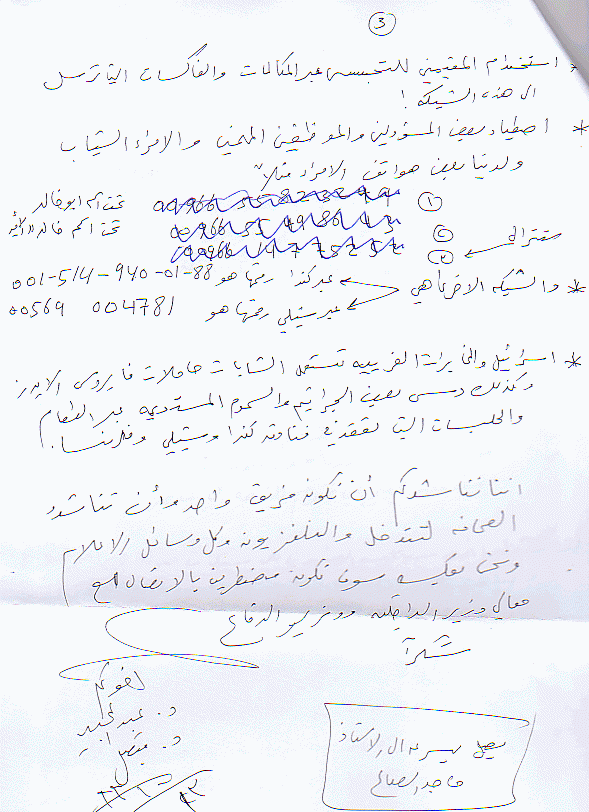 3
* استخدام المقيمين للتجسس عبر المكالمات والفاكسات التي ترسل
الى هذه الشبكة !
* اصطياد بعض المسؤولين والموظفين المهمين والامراء الشباب
ولدينا بعض هواتف الامراء مثلاً
١ تحت اسم ابو خالد
٢ تحت اسم خالد
٣
* والشبكه الاخرى هي عبر كندا رقمها هو 001-514-940-01-88
عبر سيتلي رقمها هو 00569 004781
* اسرائيل والمخابرات الغربيه تستعمل الشابات حاملات فايروس الايدز
وكذلك دس بعض الجراثيم والسموم المستديمه عبر الطعام
والجلسات التي تعقد في فنادق كندا وسيتلي وفلوريدا.
اننا نناشدكم أن نكون فريق واحد وأن تناشدو
الصحافه لتتدخل والتلفزيون وكل وسائل الاعلام
ونحن بعكسه سوف نكون مضطرين بالاتصال مع
معالي وزير الداخليه ووزير الدفاع
شكراً
اخوكم
د. عبد
د.
يصل بسرعه الى الاستاذ
ماجد الصالح